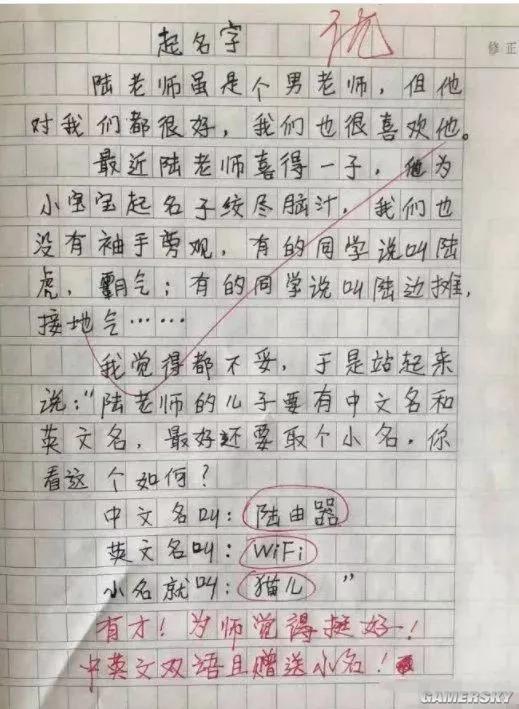 起名字
优
修正
陆老师虽是个男老师，但他
对我们都很好，我们也很喜欢他。
最近陆老师喜得一子，他为
小宝宝起名子绞尽脑汁，我们也
没有袖手旁观，有的同学说叫陆
虎，霸气；有的同学说叫陆边摊，
接地气……
我觉得都不妥，于是站起来
说：“陆老师的儿子要有中文名和
英文名，最好还要取个小名，你
看这个如何？
中文名叫：陆由器
英文名叫：WiFi
小名就叫：猫儿”
有才！为师觉得挺好！
中英文双语且赠送小名！
GAMERSKY